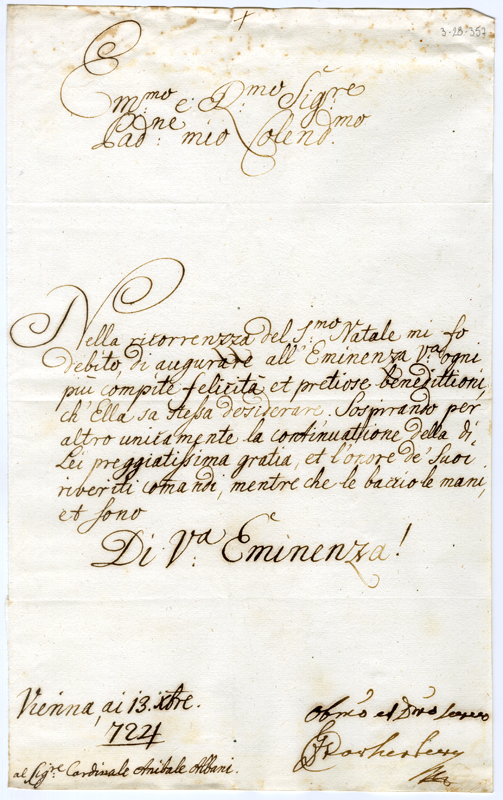 3-28-357
Em.mo e D.mo Sig.re
Pad.ne mio Colend.mo
Nella ricorrenzza del S.mo Natale mi fo
debito, di augurare all'Eminenza V.a ogni
più compite felicità et pretiose benedittioni,
ch'Ella sa stessa desiderare. Sospirando per
altro unicamente la continuatione della di
Lei preggiatisima gratia, et l'onore de' Suoi
riveriti comandi, mentre che le baccio le mani,
et sono
Di V.a Eminenza!
Vienna, ai 13. xbre.
724
al Sig.re Cardinale Anibale Albani.